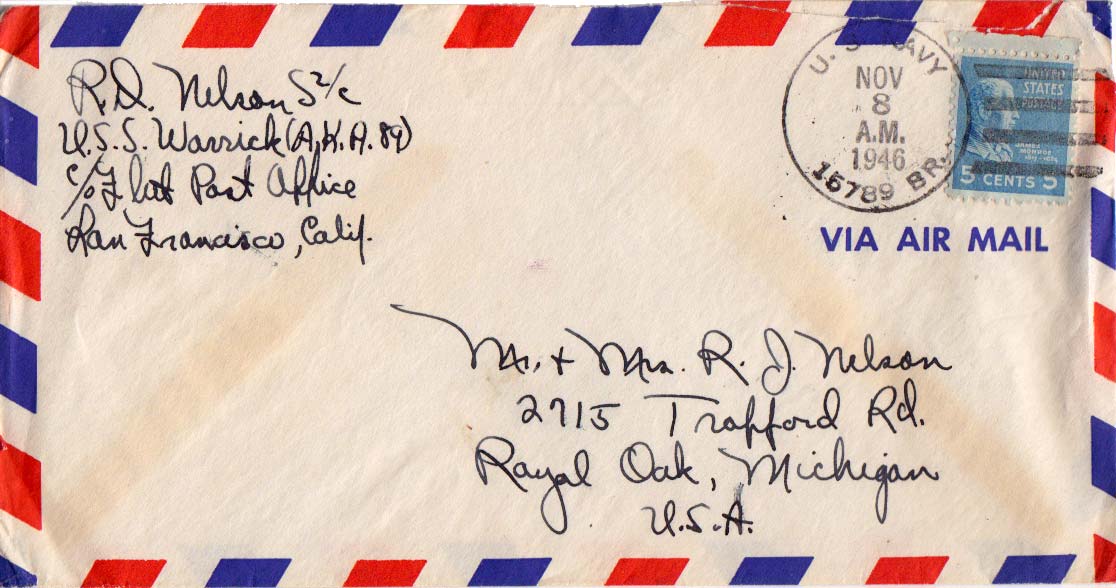 R.D. Nelson S 2/c
U.S.S. Warrick (A.K.A. 89)
c/o Fleet Post Office
San Francisco, Calif.
U. S. NAVY
NOV
8
A.M.
1946
15789 BR.
UNITED
STATES
POSTAGE
JAMES
MONROE
1817-1825
5 CENTS 5
VIA AIR MAIL
Mr. + Mrs. R. J. Nelson
2715 Trafford Rd.
Royal Oak, Michigan
U.S.A.